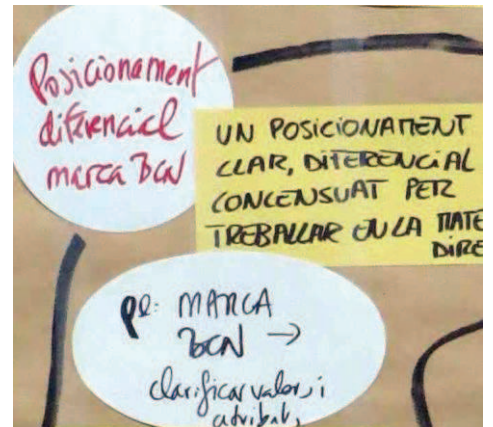 Posicionament
diferencial
marca BCN
UN POSICIONAMENT
CLAR, DIFERENCIAL
CONCENSUAT PER
TREBALLAR EN LA MATE
DIRE
Pl: MARCA
BCN →
clarificar valors i
atributs